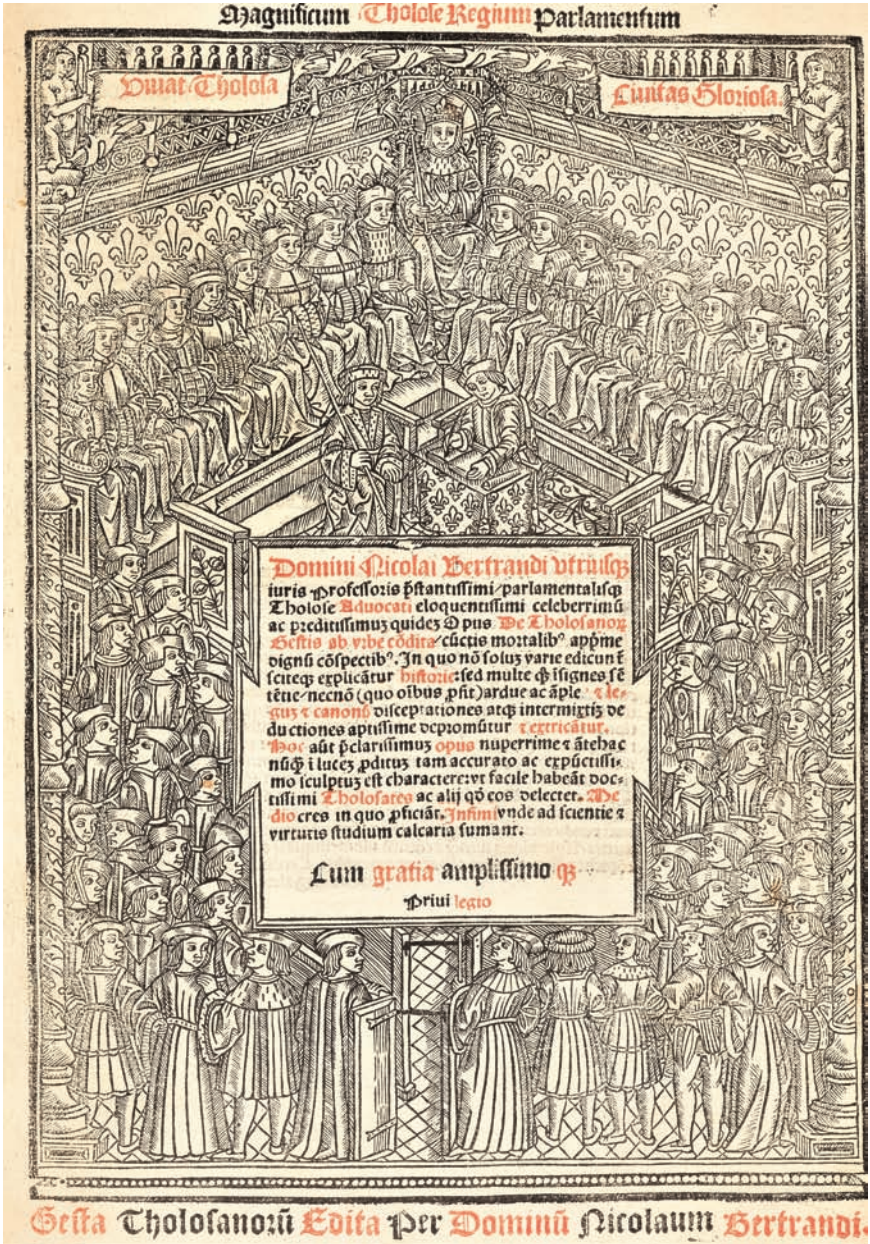 Magnificum Tholose Regium Parlamentum
Viuat Tholosa
Ciuitas Gloriosa.
Domini Nicolai Bertrandi vtriusqꝫ
iuris professoris p̄stantissimi/parlamentalisqꝫ
Tholose Aduocati eloquentissimi celeberrimū
ac peditissimuꝫ quideꝫ Opus De Tholosanoꝝ
Gestis ab vrbe cōdita/cūctis mortalibꝰ app̄me
dignū cōspectibꝰ. In quo nō soluꝫ varie edicunt̄
sciteqꝫ explicātur historie: sed multe qꝫ īsignes sē
tētie/necnō (quo oībus ꝓsit) ardue ac āple ⁊ le-
guꝫ ⁊ canonū disceptationes atqꝫ intermixtis de
ductiones aptissime depromūtur ⁊ extricātur.
Hoc aūt p̄clarissimuꝫ opus nuperrime ⁊ ātehac
nūqꝫ̄ i luceꝫ ꝓdituꝫ tam accurato ac expūctissi-
mo sculptuꝫ est charactere: vt facile habeāt doc-
tissimi Tholosates ac alij qd̄ eos delectet. Me
diocres in quo ꝓficiāt. Infimi vnde ad scientie ⁊
virtutis studium calcaria sumant.
Cum gratia amplissimo qꝫ
Priuilegio
Gesta Tholosanorū Edita Per Dominū Nicolaum Bertrandi.